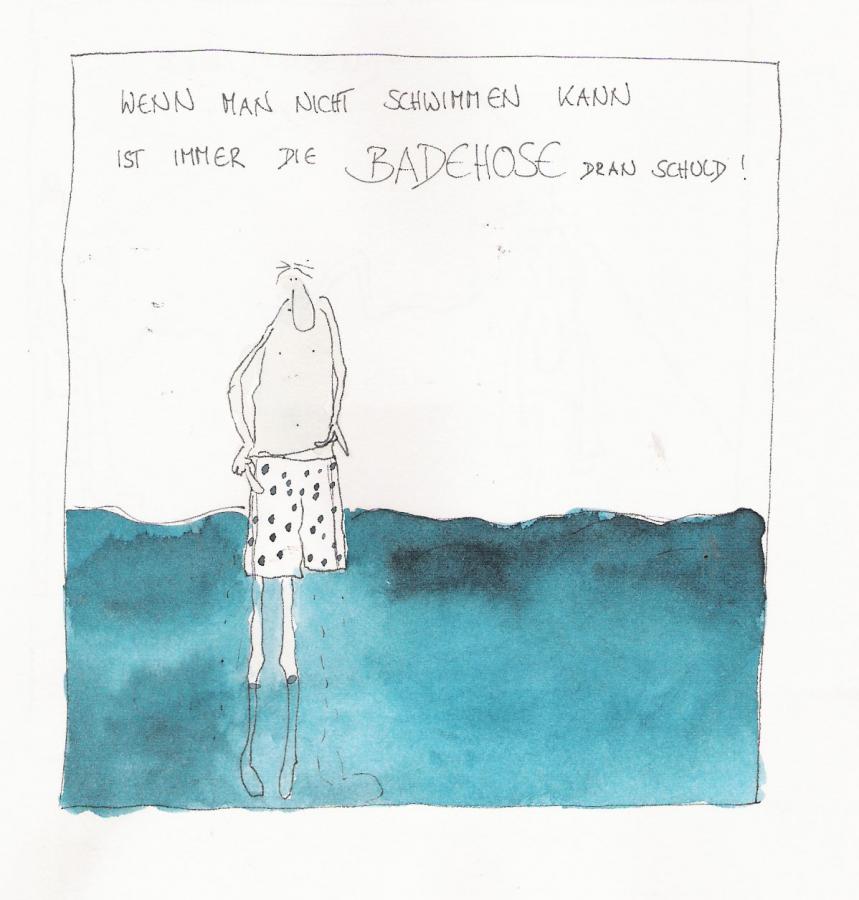 WENN MAN NICHT SCHWIMMEN KANN
IST IMMER DIE BADEHOSE DRAN SCHULD!